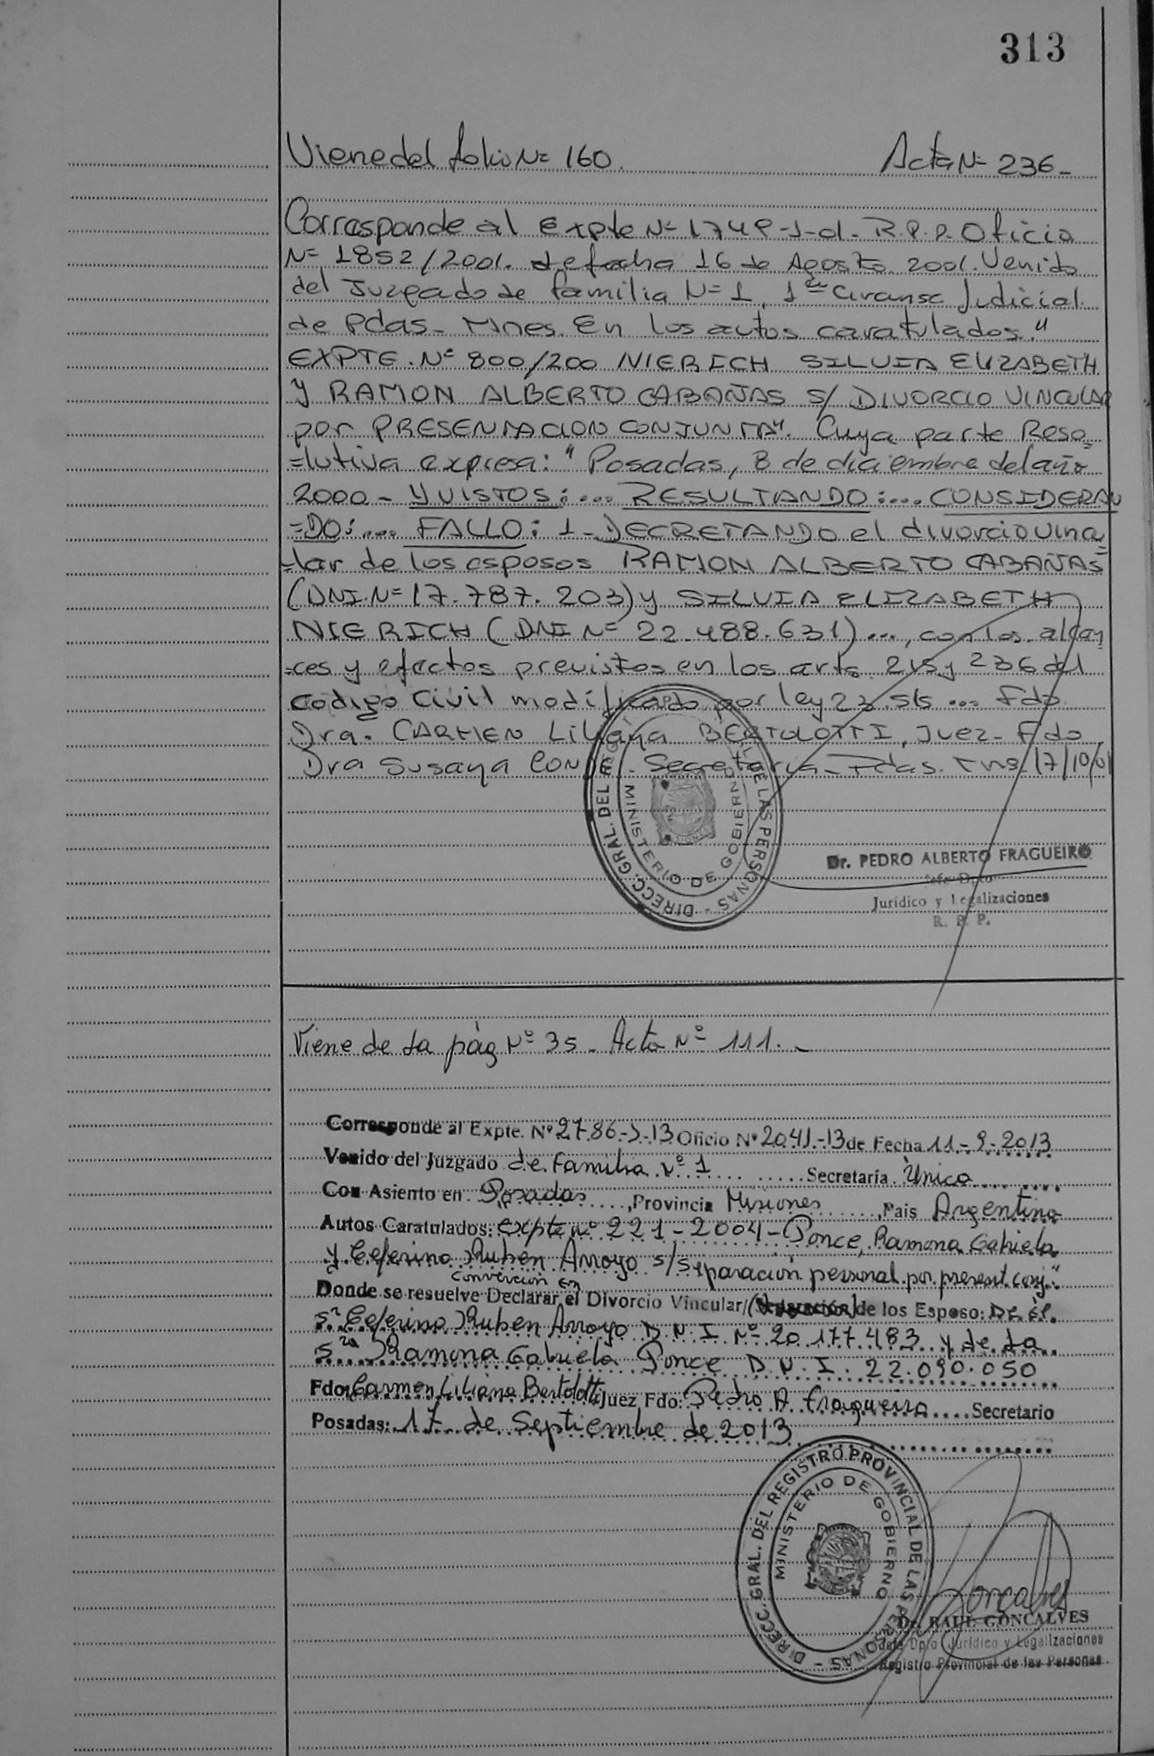 313
Viene del folio Nº 160. Acta Nº 236_
Corresponde al Expte Nº 1749-J-01. R.P.P. Oficio
Nº 1852/2001. de fecha 16 de Agosto. 2001. Venido
del Juzgado de familia Nº 1, 1ª Circunsc Judicial
de Pdas_ Mnes. En los autos caratulados."
EXPTE. Nº 800/200 NIERICH SILVIA ELIZABETH
Y RAMON ALBERTO CABAÑAS S/ DIVORCIO VINCULAR
por PRESENTACION CONJUNTA". Cuya parte Reso=
=lutiva expresa: "Posadas, 8 de diciembre del año
2000_ Y VISTOS:... RESULTANDO:... CONSIDERAN
=DO:... FALLO: 1_ DECRETANDO el divorcio vincu
=lar de los esposos RAMON ALBERTO CABAÑAS
(DNI.Nº 17.787.203) y SILVIA ELIZABETH
NIERICH (DNI Nº 22.488.631)..., con los alcan
=ces y efectos previstos en los arts. 215 y 236 del
Codigo Civil modificado por ley 23.515 ... Fdo.
Dra. CARMEN Liliana BERTOLOTTI, Juez_ Fdo
Dra Susana CONDE. Secretaria_ Pdas. Mns. 17/10/01
DIRECC. GRAL. DEL REGISTRO PROVINCIAL DE LAS PERSONAS -
MINISTERIO DE GOBIERNO
Dr. PEDRO ALBERTO FRAGUEIRO
Jefe Dpto
Jurídico y Legalizaciones
R. P. P.
Viene de la pág Nº 35_ Acta Nº 111._
Corresponde al Expte. Nº 2786-J-13 Oficio Nº 2041-13 de Fecha 11-9-2013
Venido del Juzgado de Familia Nº 1 Secretaría Única
Con Asiento en Posadas, Provincia Misiones, País Argentina
Autos Caratulados: Expte nº 221-2004-Ponce, Ramona Gabriela
y Ceferino Ruben Arroyo s/separación personal por present. conj."
Conversión en
Donde se resuelve Declarar el Divorcio Vincular/(Separación) de los Esposo: DE el
Sr Ceferino Ruben Arroyo D.N.I. Nº 20.177.483 y de la
Sra Ramona Gabriela Ponce D.N.I. 22.090.050
Fdo: Carmen Liliana Bertolotti Juez Fdo: Pedro A. Fragueiro Secretario
Posadas: 17 de Septiembre de 2013
DIRECC. GRAL. DEL REGISTRO PROVINCIAL DE LAS PERSONAS -
MINISTERIO DE GOBIERNO
Goncalves
Dr. RAUL GONCALVES
Jefe Dpto Jurídico y Legalizaciones
Registro Provincial de las Personas